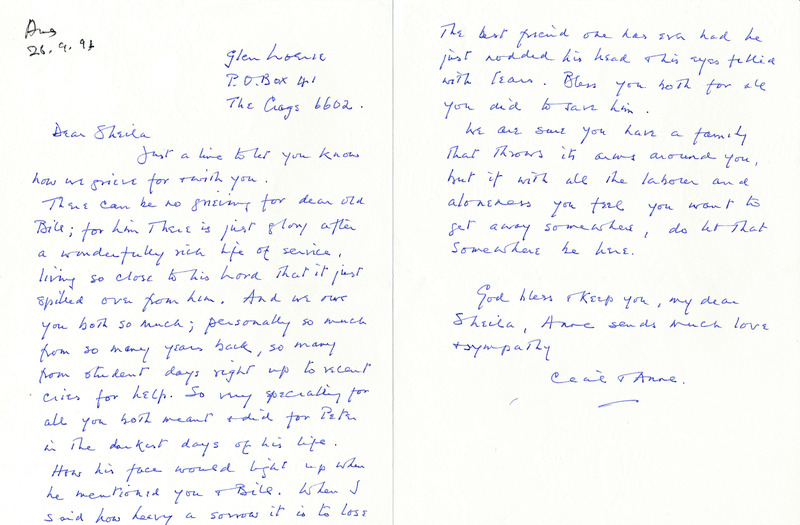 Ans
26.9.94
Glen
P.O. Box 41
The Crags 6602.
Dear Sheila
Just a line to let you know
how we grieve for & with you.
There can be no grieving for dear old
Bill; for him there is just glory after
a wonderfully rich life of service,
living so close to his Lord that it just
spilled over from him. And we owe
you both so much; personally so much
from so many years back, so many
from student days right up to recent
cries for help. So very specially for
all you both meant & did for Peter
in the darkest days of his life.
How his face would light up when
he mentioned you & Bill. When I
said how heavy a sorrow it is to lose
The best friend one has ever had he
just nodded his head & his eyes filled
with tears. Bless you both for all
you did to save him.
We are sure you have a family
that throws its arms around you,
but if with all the labour and
aloneness you feel you want to
get away somewhere, do let that
somewhere be here.
God bless & keep you, my dear
Sheila, Anne sends much love
& sympathy
Cecil & Anne.